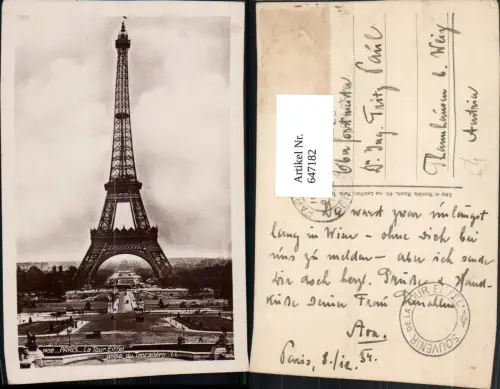 PARIS _ La Tour Eiffel
prise du Trocadéro LL
Artikel Nr.
647182
Dr. Ing. Fritz Paul
Thannhausen b. Weiz
Austria
Du warst zwar unlängst
lang in Wien – ohne Dich bei
uns zu melden – aber ich sende
Dir doch herzl. Grüße. Hand-
küße Deiner Frau
Paris, 34.
SOUVENIR DE LA TOUR EIFFEL